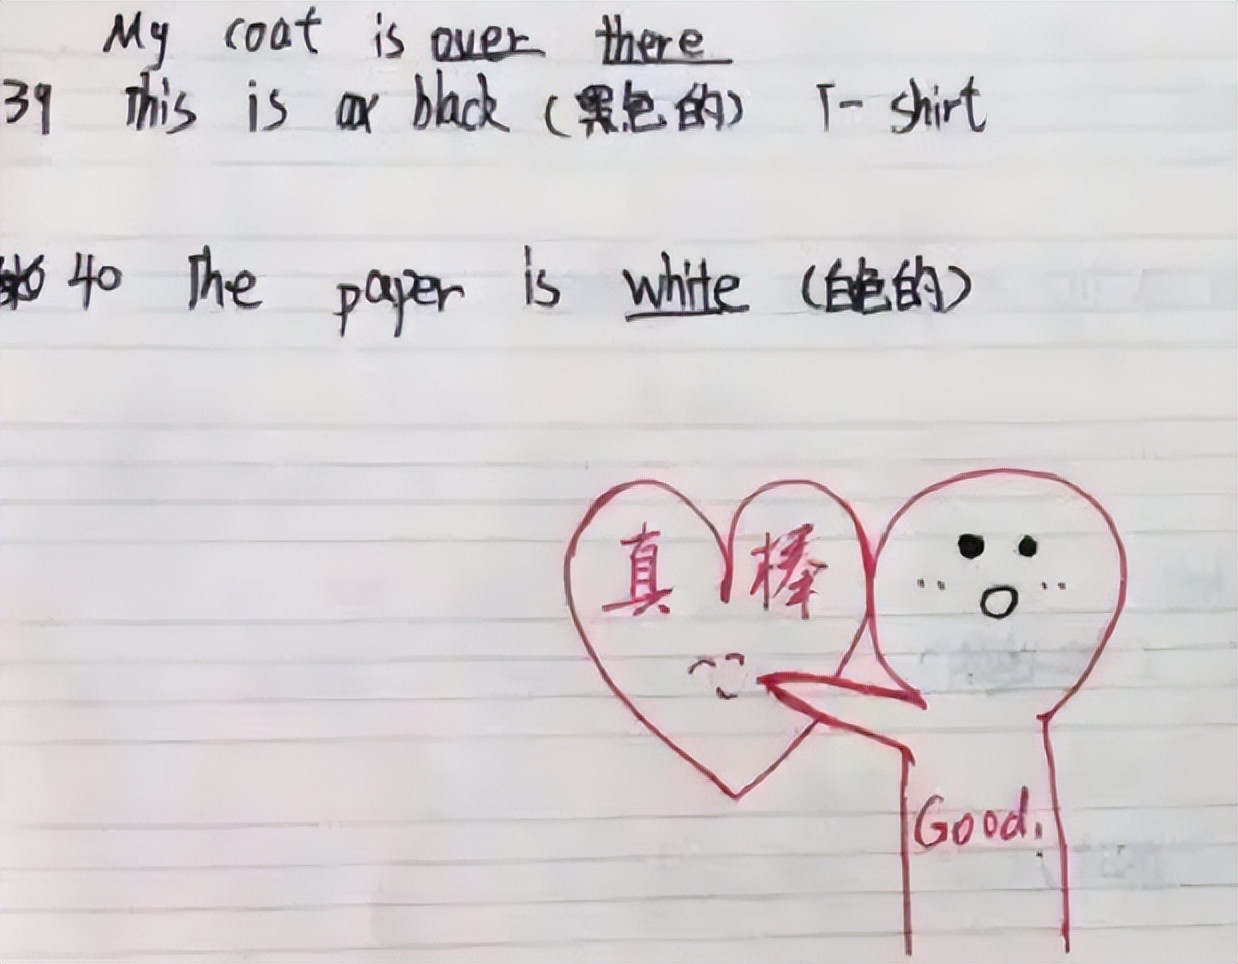 My coat is over there
39 This is a black (黑色的) T-shirt
40 The paper is white (白色的)
真棒
Good.